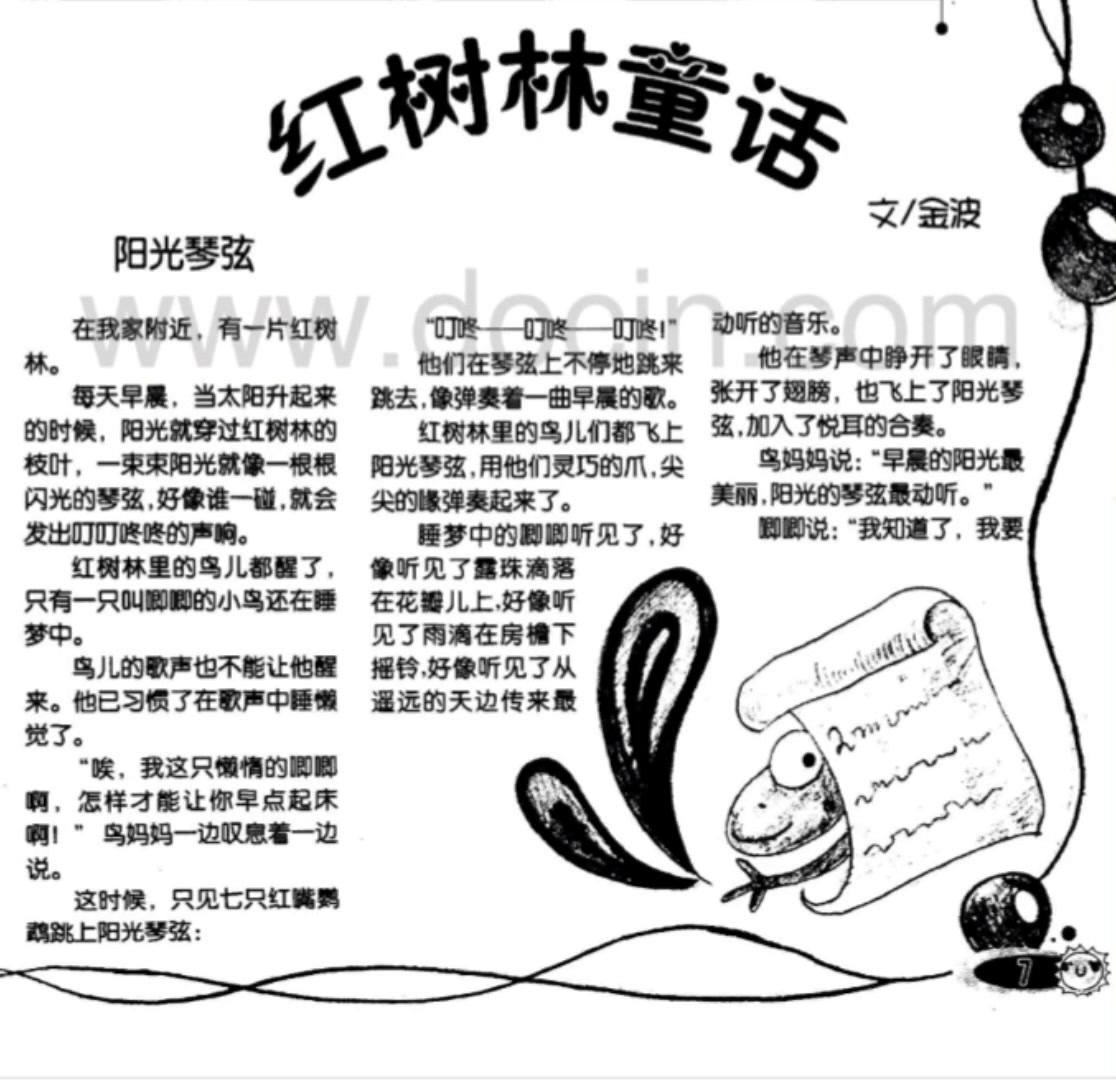 红树林童话
文/金波
阳光琴弦
www.docin.com
在我家附近，有一片红树
林。
每天早晨，当太阳升起来
的时候，阳光就穿过红树林的
枝叶，一束束阳光就像一根根
闪光的琴弦，好像谁一碰，就会
发出叮叮咚咚的声响。
红树林里的鸟儿都醒了，
只有一只叫唧唧的小鸟还在睡
梦中。
鸟儿的歌声也不能让他醒
来。他已习惯了在歌声中睡懒
觉了。
“唉，我这只懒惰的唧唧
啊，怎样才能让你早点起床
啊！”鸟妈妈一边叹息着一边
说。
这时候，只见七只红嘴鹦
鹉跳上阳光琴弦：
“叮咚——叮咚——叮咚！”
他们在琴弦上不停地跳来
跳去，像弹奏着一曲早晨的歌。
红树林里的鸟儿们都飞上
阳光琴弦，用他们灵巧的爪，尖
尖的喙弹奏起来了。
睡梦中的唧唧听见了，好
像听见了露珠滴落
在花瓣儿上，好像听
见了雨滴在房檐下
摇铃，好像听见了从
遥远的天边传来最
动听的音乐。
他在琴声中睁开了眼睛，
张开了翅膀，也飞上了阳光琴
弦，加入了悦耳的合奏。
鸟妈妈说：“早晨的阳光最
美丽，阳光的琴弦最动听。”
唧唧说：“我知道了，我要
7